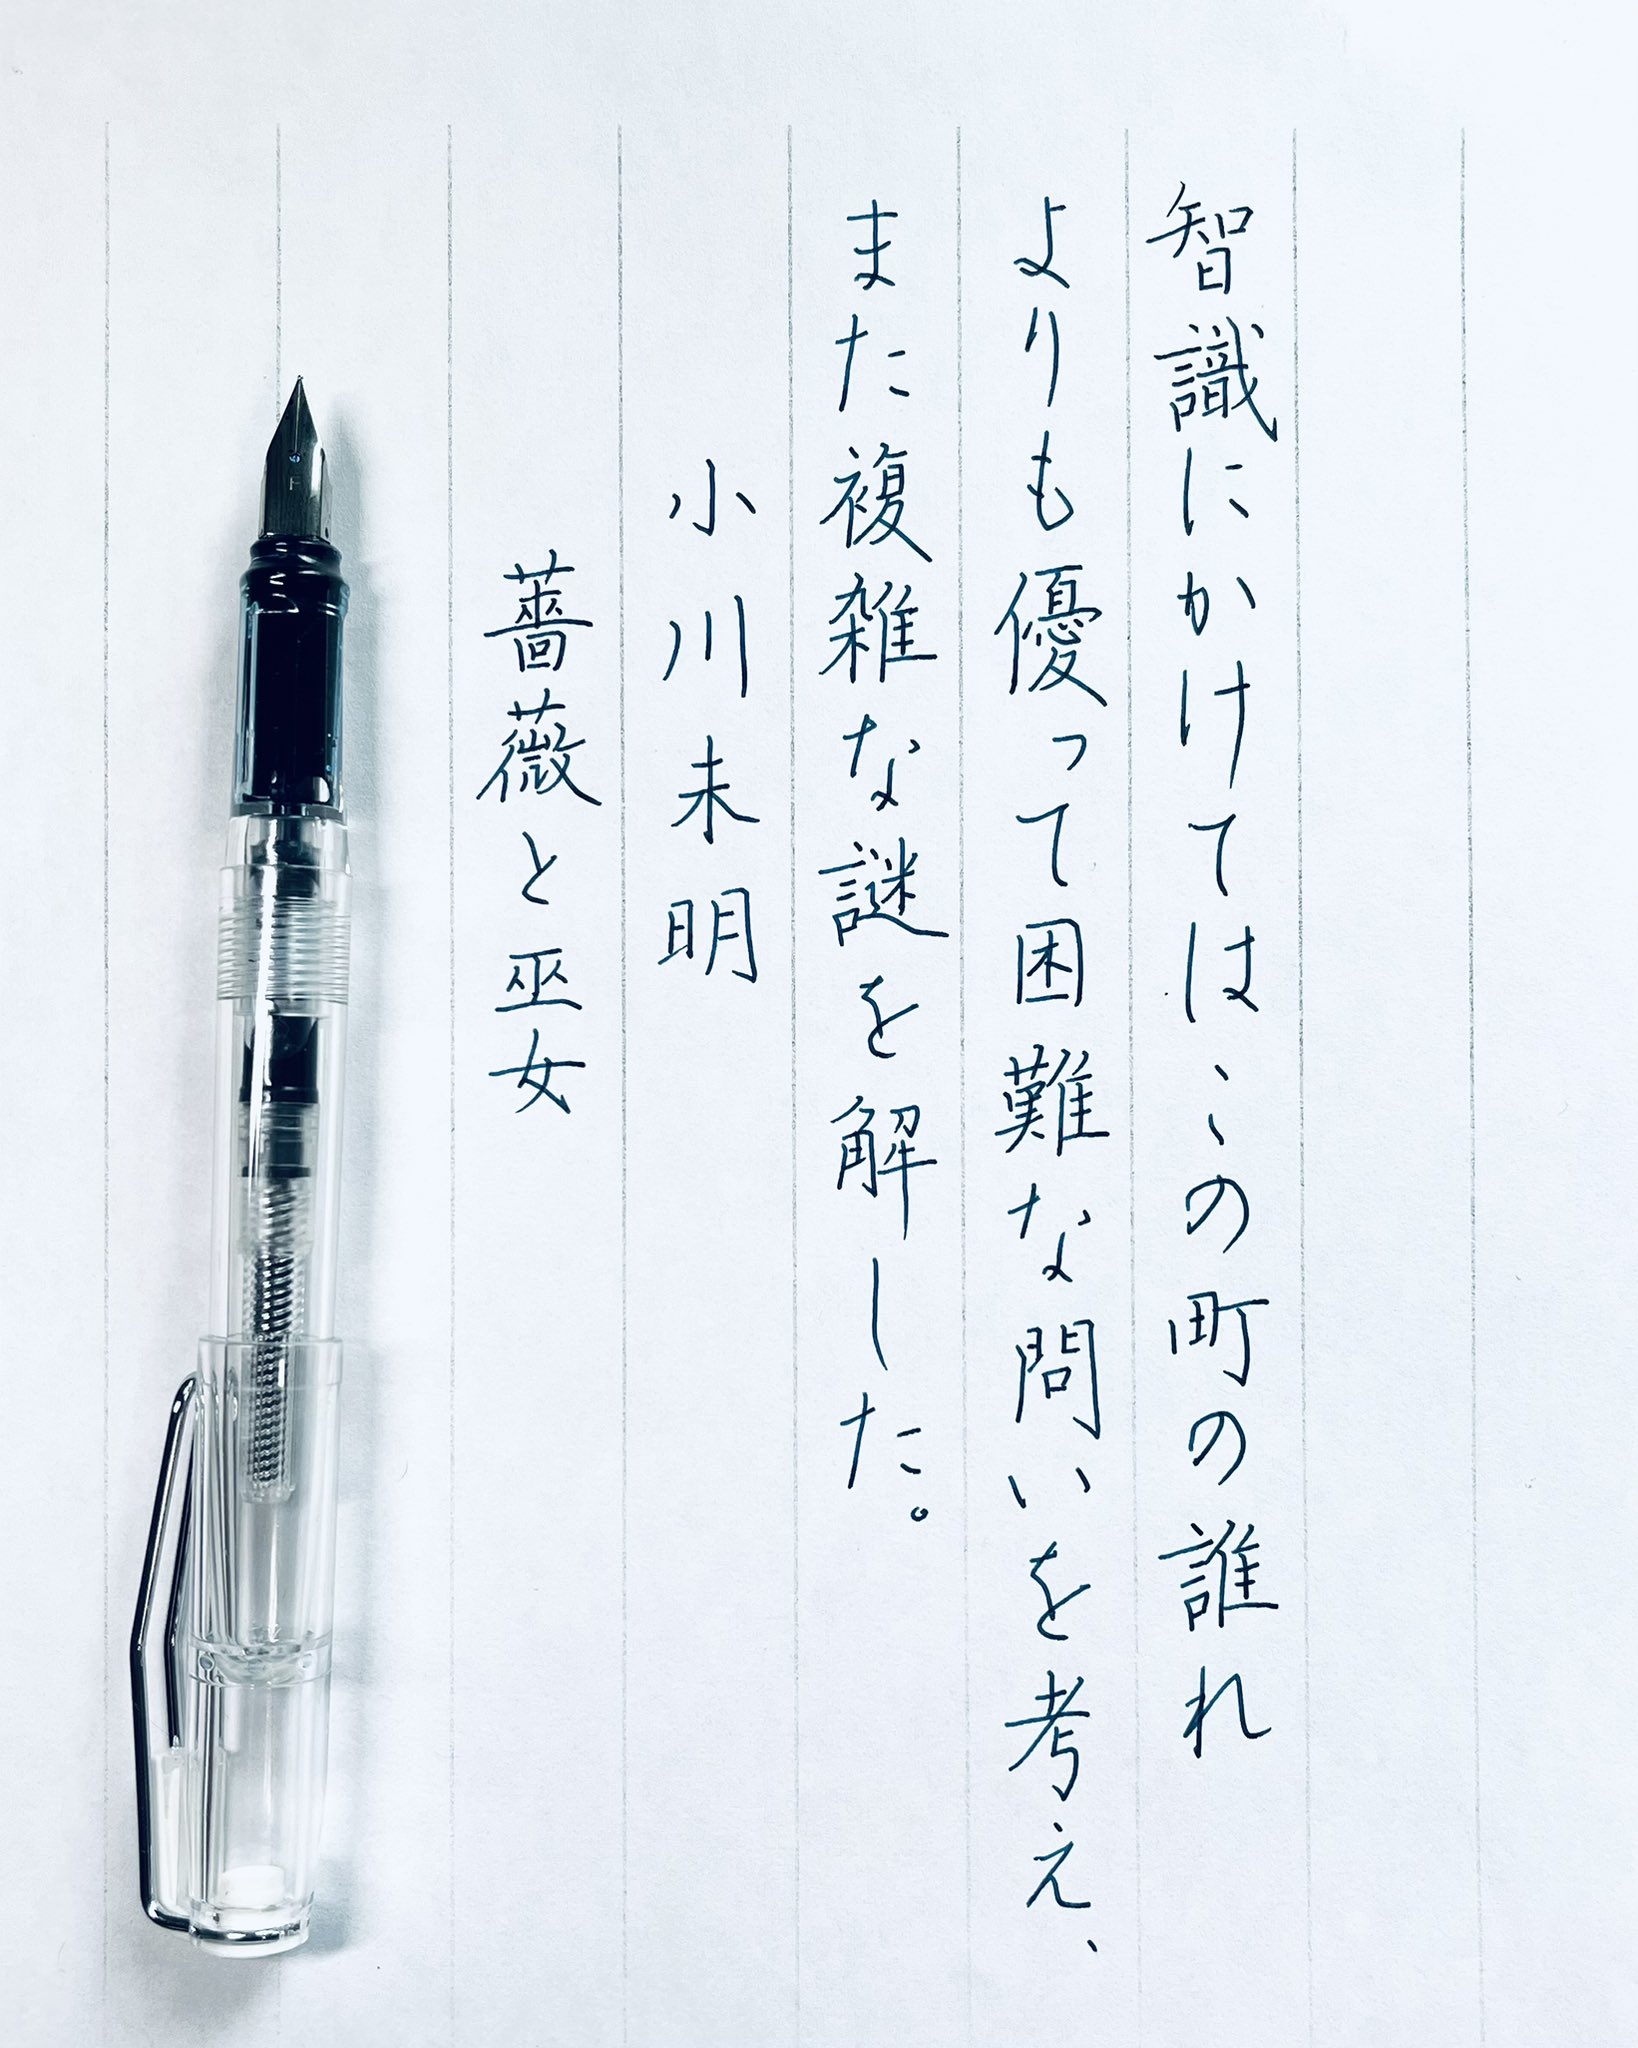 智識にかけてはこの町の誰れ
よりも優って困難な問いを考え、
また複雑な謎を解した。
小川未明
薔薇と巫女
F